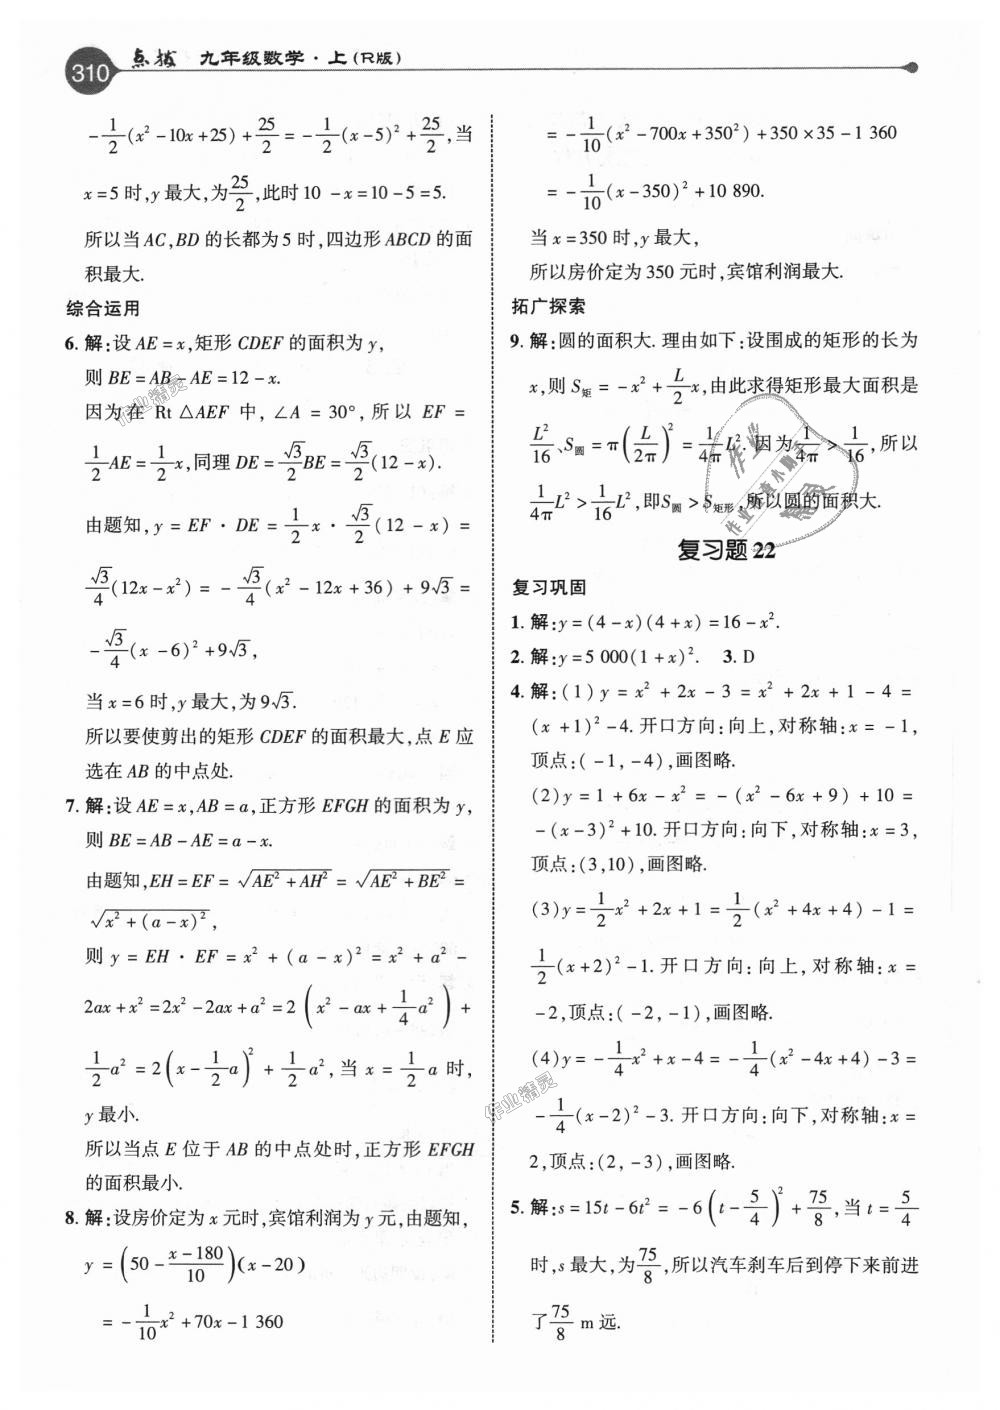 310 点拨 九年级数学·上(R版)
-1/2(x²-10x+25)+25/2=-1/2(x-5)²+25/2,当
x=5时,y最大,为25/2,此时10-x=10-5=5.
所以当AC,BD的长都为5时,四边形ABCD的面
积最大.
综合运用
6. 解:设AE=x,矩形CDEF的面积为y,
则BE=AB-AE=12-x.
因为在Rt△AEF中,∠A=30°,所以EF=
1/2AE=1/2x,同理DE=√3/2BE=√3/2(12-x).
由题知,y=EF·DE=1/2x·√3/2(12-x)=
√3/4(12x-x²)=-√3/4(x²-12x+36)+9√3=
-√3/4(x-6)²+9√3,
当x=6时,y最大,为9√3.
所以要使剪出的矩形CDEF的面积最大,点E应
选在AB的中点处.
7. 解:设AE=x,AB=a,正方形EFGH的面积为y,
则BE=AB-AE=a-x.
由题知,EH=EF=√(AE²+AH²)=√(AE²+BE²)=
√(x²+(a-x)²),
则y=EH·EF=x²+(a-x)²=x²+a²-
2ax+x²=2x²-2ax+a²=2(x²-ax+1/4a²)+
1/2a²=2(x-1/2a)²+1/2a²,当x=1/2a时,
y最小.
所以当点E位于AB的中点处时,正方形EFGH
的面积最小.
8. 解:设房价定为x元时,宾馆利润为y元,由题知,
y=(50-(x-180)/10)(x-20)
=-1/10x²+70x-1 360
=-1/10(x²-700x+350²)+350×35-1 360
=-1/10(x-350)²+10 890.
当x=350时,y最大,
所以房价定为350元时,宾馆利润最大.
拓广探索
9. 解:圆的面积大.理由如下:设围成的矩形的长为
x,则S矩=-x²+L/2x,由此求得矩形最大面积是
L²/16、S圆=π(L/2π)²=1/4πL².因为1/4π>1/16,所以
1/4πL²>1/16L²,即S圆>S矩形,所以圆的面积大.
复习题22
复习巩固
1. 解:y=(4-x)(4+x)=16-x².
2. 解:y=5 000(1+x)². 3. D
4. 解:(1)y=x²+2x-3=x²+2x+1-4=
(x+1)²-4.开口方向:向上,对称轴:x=-1,
顶点:(-1,-4),画图略.
(2)y=1+6x-x²=-(x²-6x+9)+10=
-(x-3)²+10.开口方向:向下,对称轴:x=3,
顶点:(3,10),画图略.
(3)y=1/2x²+2x+1=1/2(x²+4x+4)-1=
1/2(x+2)²-1.开口方向:向上,对称轴:x=
-2,顶点:(-2,-1),画图略.
(4)y=-1/4x²+x-4=-1/4(x²-4x+4)-3=
-1/4(x-2)²-3.开口方向:向下,对称轴:x=
2,顶点:(2,-3),画图略.
5. 解:s=15t-6t²=-6(t-5/4)²+75/8,当t=5/4
时,s最大,为75/8,所以汽车刹车后到停下来前进
了75/8 m远.
作业精灵
作业精灵